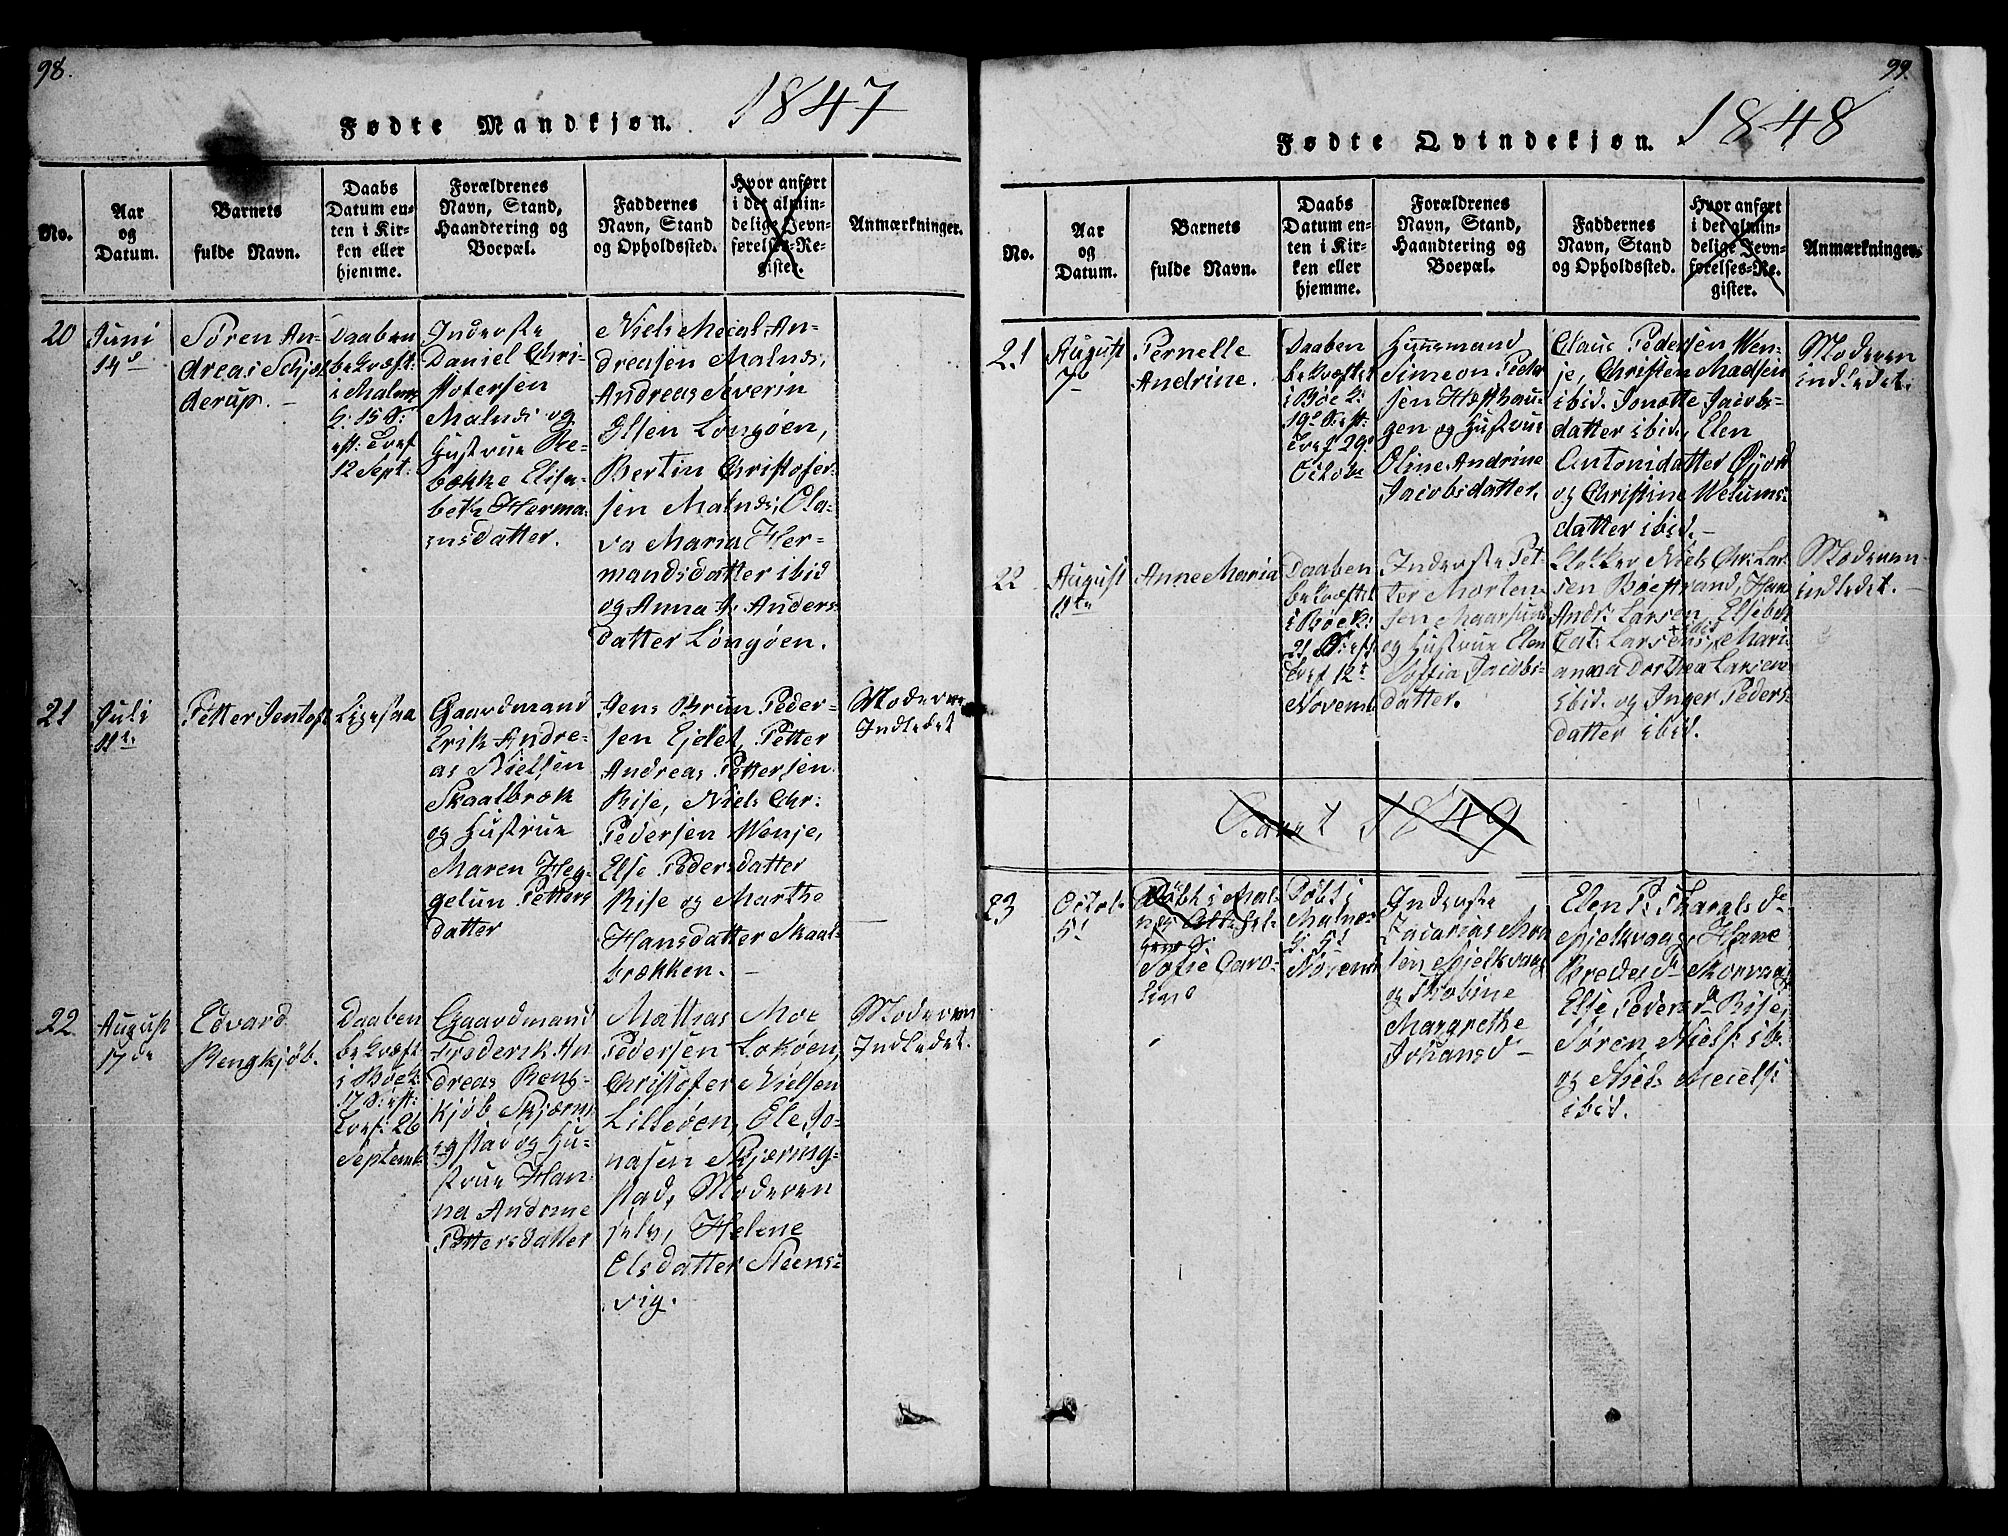 98.
Fødte Mandkjøn. 1847
No.
Aar
og
Datum.
Barnets
fulde Navn.
Daabs
Datum en-
ten i Kir-
ken eller
hjemme.
Forældrenes
Navn, Stand,
Haandtering og
Boepæl.
Faddernes
Navn, Stand
og Opholdssted.
Hvor anført
i det almin-
delige Jevn-
førelses-Re-
gister.
Anmærkninger.
20
Juni
14d
Søren An-
dreas Schjel
derup. -
Daaben
bekræft:
i Malnes
15 S:
eft: Tref
12 Sept:
Inderste
Daniel Chri-
stofersen
Malnes og
Hustrue Re-
bække Elisa-
beth Herma-
nsdatter.
Niels Meial An-
dreasen Malnæs,
Andreas Severin
Olsen Longøen,
Bertin Christofer-
sen Malnæs, Ola-
va Maria Her-
mandsdatter ibid
og Anna Anders-
datter Longøen.
21
Juli
11te
Petter Jentoft
Ligesaa
Gaardmand
Erik Andre-
as Nielsen
Skaalbræk
og Hustrue
Maren Heg-
gelun Petters
datter
Jens Brun Peder-
sen Ejdet, Petter
Andreas Pettersen
Rise, Niels Chr:
Pedersen Wenje,
Else Pedersdatter
Rise og Marthe
Hansdatter Skaal-
brækken. -
Moderen
Indledet
22
August
17de
Edvard
Rengkjøb.
Daaben
bekræft
i Bøe K:
17 S: eft:
Tref: 26
Septemb:
Gaardmand
Frederik An
dreas Reng-
kjøb Skjæring
stad og Hu-
strue Han-
na Andrine
Pettersdatter
Mathias Moe
Pedersen Lokøen,
Christofer Nielsen
Lilleøen, Ole Jo-
nasen Skjæring-
stad, Moderen
selv, Helene
Olsdatter Steens-
vig.
Moderen
Indledet.
99.
Fødte Qvindekjøn. 1848
No.
Aar
og
Datum.
Barnets
fulde Navn.
Daabs
Datum en-
ten i Kir-
ken eller
hjemme.
Forældrenes
Navn, Stand,
Haandtering og
Boepæl.
Faddernes
Navn, Stand
og Opholdssted.
Hvor anført
i det almin-
delige Jevn-
førelses-Re-
gister.
Anmærkninger.
21
August
7de
Pernelle
Andrine.
Daaben
bekræftet
i Bøe K:
19de S: eft:
Tref 29de
Octob
Huusmand
Simeon Peder
sen Hæsthau-
gen og Hustrue
Oline Andrine
Jacobsdatter.
Claus Pedersen Wen-
je, Christen Madsen
ibid. Jonette Jacobs-
datter ibid, Elen
Antonidatter Øjord
og Christine Welums-
datter ibid. -
Moderen
indledet.
22
August
11te
Anne Maria
Daaben
bekræftet
i Bøe K:
21 S: eft
Tref 12t
Novemb
Inderste Pet-
ter Morten-
sen Maarsund
og Hustrue Elen
Soffia Jacobs-
datter.
Klokker Niels Chr: Lar-
sen Bøestrand, Hans
Andr: Larsen, Elsebet
Cat: Larsens, Mari-
anna Dorthea Larsen
ibid. og Inger Peders-
datter ibid.
Moderen
indledet. -
Aaret 1849
23
Octob:
5t
Sofie Caro-
line
Døbt i
Malnæs
K: 5t
Novemb
Inderste
Zacarias Mon
sen Spjelkvaag
og Jkobine
Margrethe
Johansd -
Elen P: Tharalsd
Spjelkvaag, Hane
Bredesd Skorvag
Else Pedersd Rise,
Søren Niels: ib:
og Niels Meiels:
ibid.